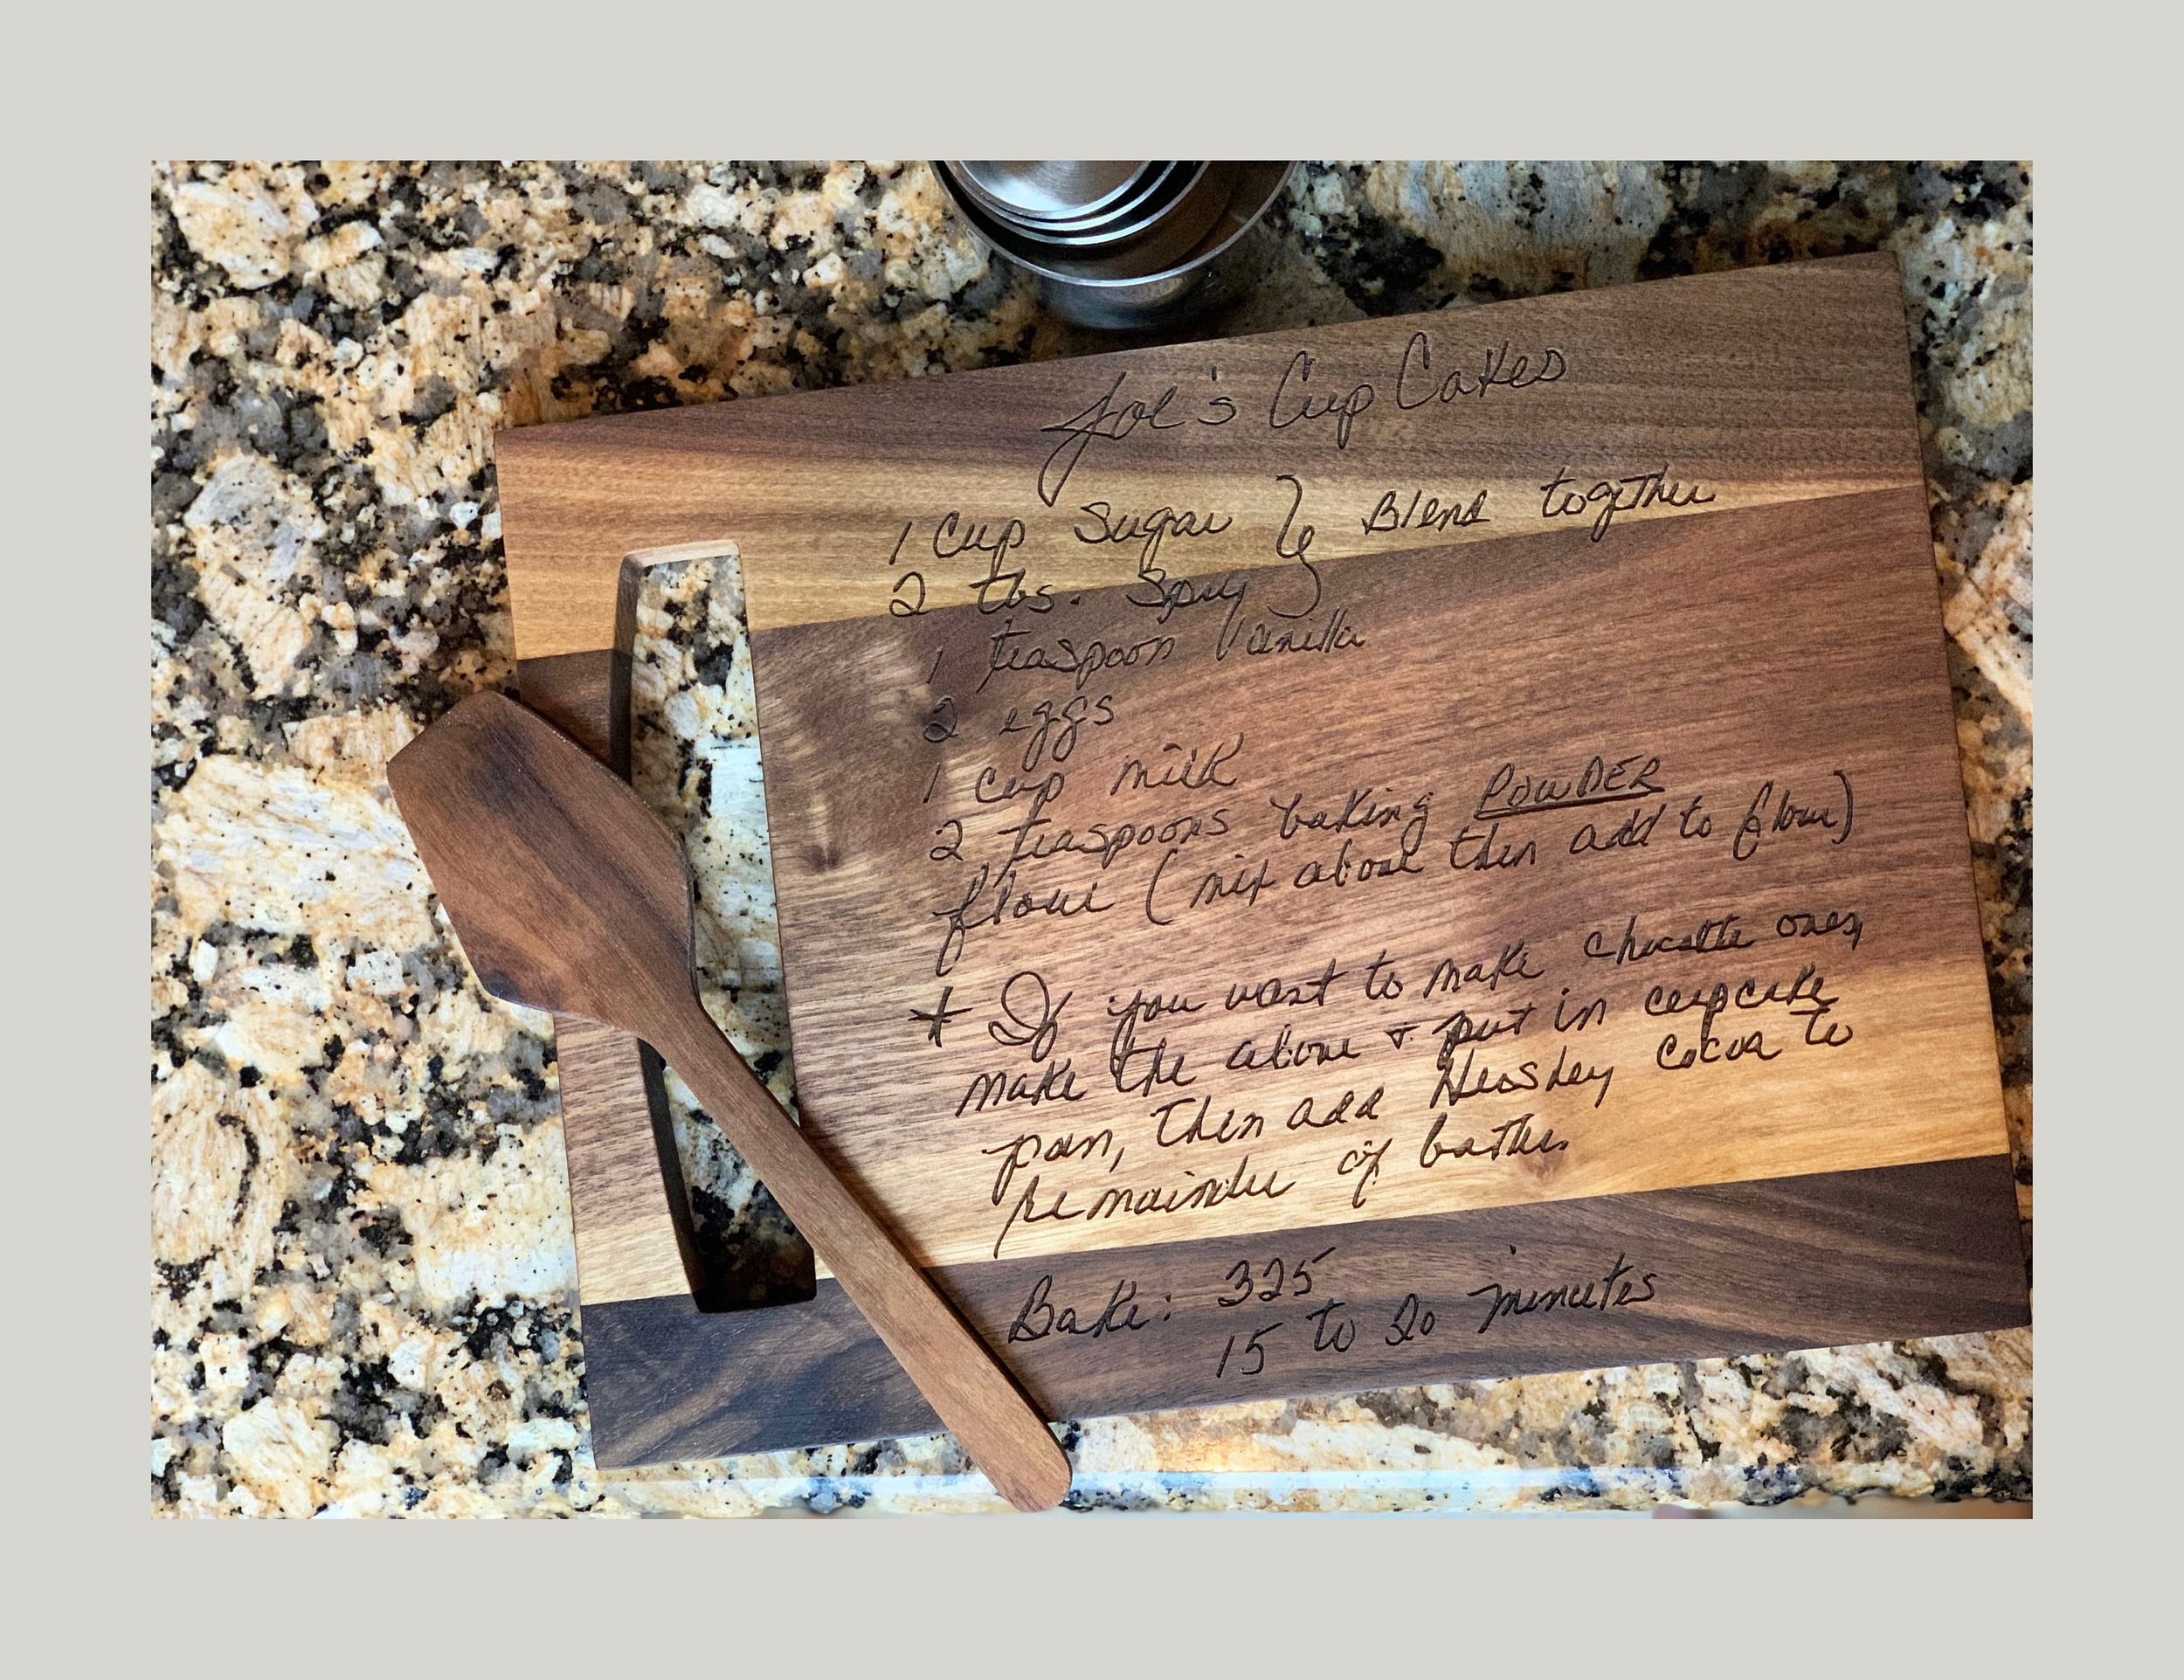 Joe's Cup Cakes
1 cup sugar } Blend together
2 tbs. Spry
1 teaspoon Vanilla
2 eggs
1 cup milk
2 teaspoons baking POWDER
flour (mix above then add to flour)
* If you want to make chocolate ones,
make the above & put in cupcake
pan, then add Hershey cocoa to
remainder of batter
Bake: 325
15 to 20 minutes